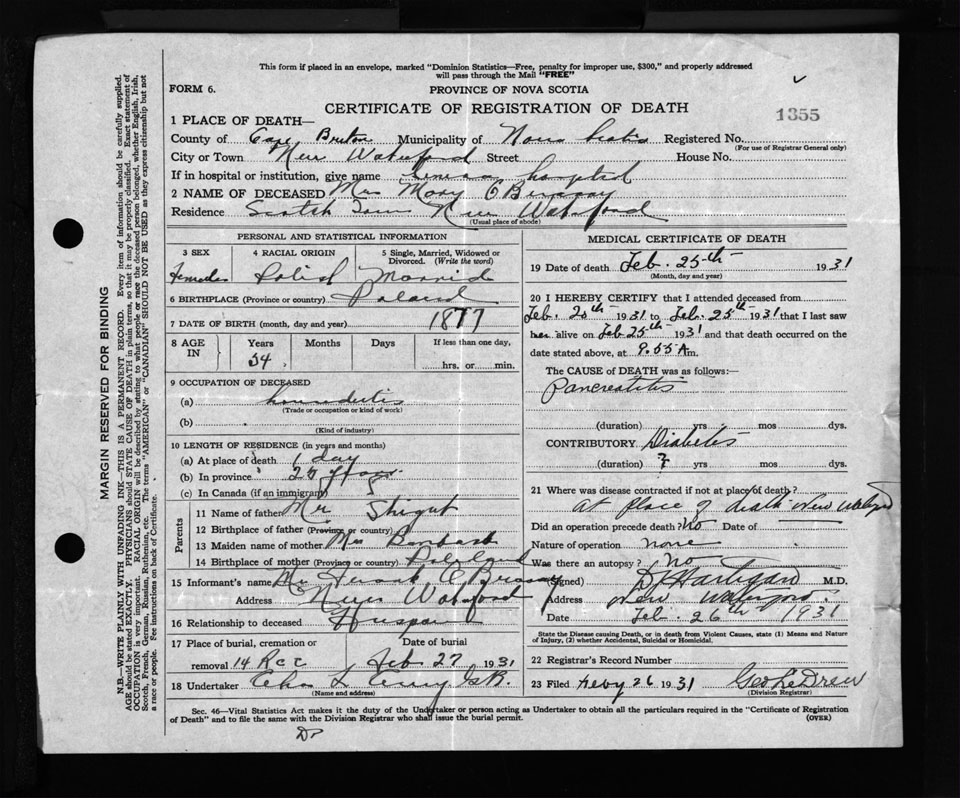 This form if placed in an envelope, marked "Dominion Statistics—Free, penalty for improper use, $300," and properly addressed
will pass through the Mail "FREE"
FORM 6.
PROVINCE OF NOVA SCOTIA
CERTIFICATE OF REGISTRATION OF DEATH
1355
1 PLACE OF DEATH—
County of Cape Breton Municipality of Nova Scotia Registered No.
(For use of Registrar General only)
City or Town New Waterford Street House No.
If in hospital or institution, give name General hospital
2 NAME OF DECEASED Mrs Mary
Residence Scotch Town New Waterford
(Usual place of abode)
PERSONAL AND STATISTICAL INFORMATION
3 SEX 4 RACIAL ORIGIN 5 Single, Married, Widowed or Divorced. (Write the word)
Female Polish Married
6 BIRTHPLACE (Province or country) Poland
7 DATE OF BIRTH (month, day and year) 1877
8 AGE IN Years Months Days If less than one day,
54 hrs. or min.
9 OCCUPATION OF DECEASED
(a)
(Trade or occupation or kind of work)
(b)
(Kind of industry)
10 LENGTH OF RESIDENCE (in years and months)
(a) At place of death 1 day
(b) In province
(c) In Canada (if an immigrant)
Parents
11 Name of father Mr
12 Birthplace of father (Province or country)
13 Maiden name of mother Mrs
14 Birthplace of mother (Province or country) Poland
15 Informant's name Mr
Address New Waterford
16 Relationship to deceased
17 Place of burial, cremation or Date of burial
removal Feb 27 1931
18 Undertaker
(Name and address)
MEDICAL CERTIFICATE OF DEATH
19 Date of death Feb. 25th 1931
(Month, day and year)
20 I HEREBY CERTIFY that I attended deceased from
Feb. 1931 to Feb. 25th 1931 that I last saw
her alive on Feb 25th 1931 and that death occurred on
date stated above, at 9.55 A m.
The CAUSE of DEATH was as follows:—
Pancreatitis
(duration) yrs mos dys.
CONTRIBUTORY Diabetes
(duration) ? yrs mos dys.
21 Where was disease contracted if not at place of death?
At place of death New Waterford
Did an operation precede death? No Date of
Nature of operation none
Was there an autopsy? No
(Signed) Hartigan M.D.
Address New Waterford
Date Feb. 26th 1931
State the Disease causing Death, or in death from Violent Causes, state (1) Means and Nature
of Injury, (2) whether Accidental, Suicidal or Homicidal.
22 Registrar's Record Number
23 Filed 26 1931 Geo LeDrew
(Division Registrar)
Sec. 46—Vital Statistics Act makes it the duty of the Undertaker or person acting as Undertaker to obtain all the particulars required in the "Certificate of Registration
of Death" and to file the same with the Division Registrar who shall issue the burial permit. (OVER)
MARGIN RESERVED FOR BINDING
N.B.—WRITE PLAINLY WITH UNFADING INK—THIS IS A PERMANENT RECORD. Every item of information should be carefully supplied.
AGE should be stated EXACTLY. PHYSICIANS should STATE CAUSE OF DEATH in plain terms, so that it may be properly classified. Exact statement of
OCCUPATION is very important. RACIAL ORIGIN will be described by stating to what people or race the deceased person belonged, whether English, Irish,
Scotch, French, German, Russian, Ruthenian, etc. The terms "AMERICAN" or "CANADIAN" SHOULD NOT BE USED as they express citizenship but not
a race or people. See instructions on back of Certificate.